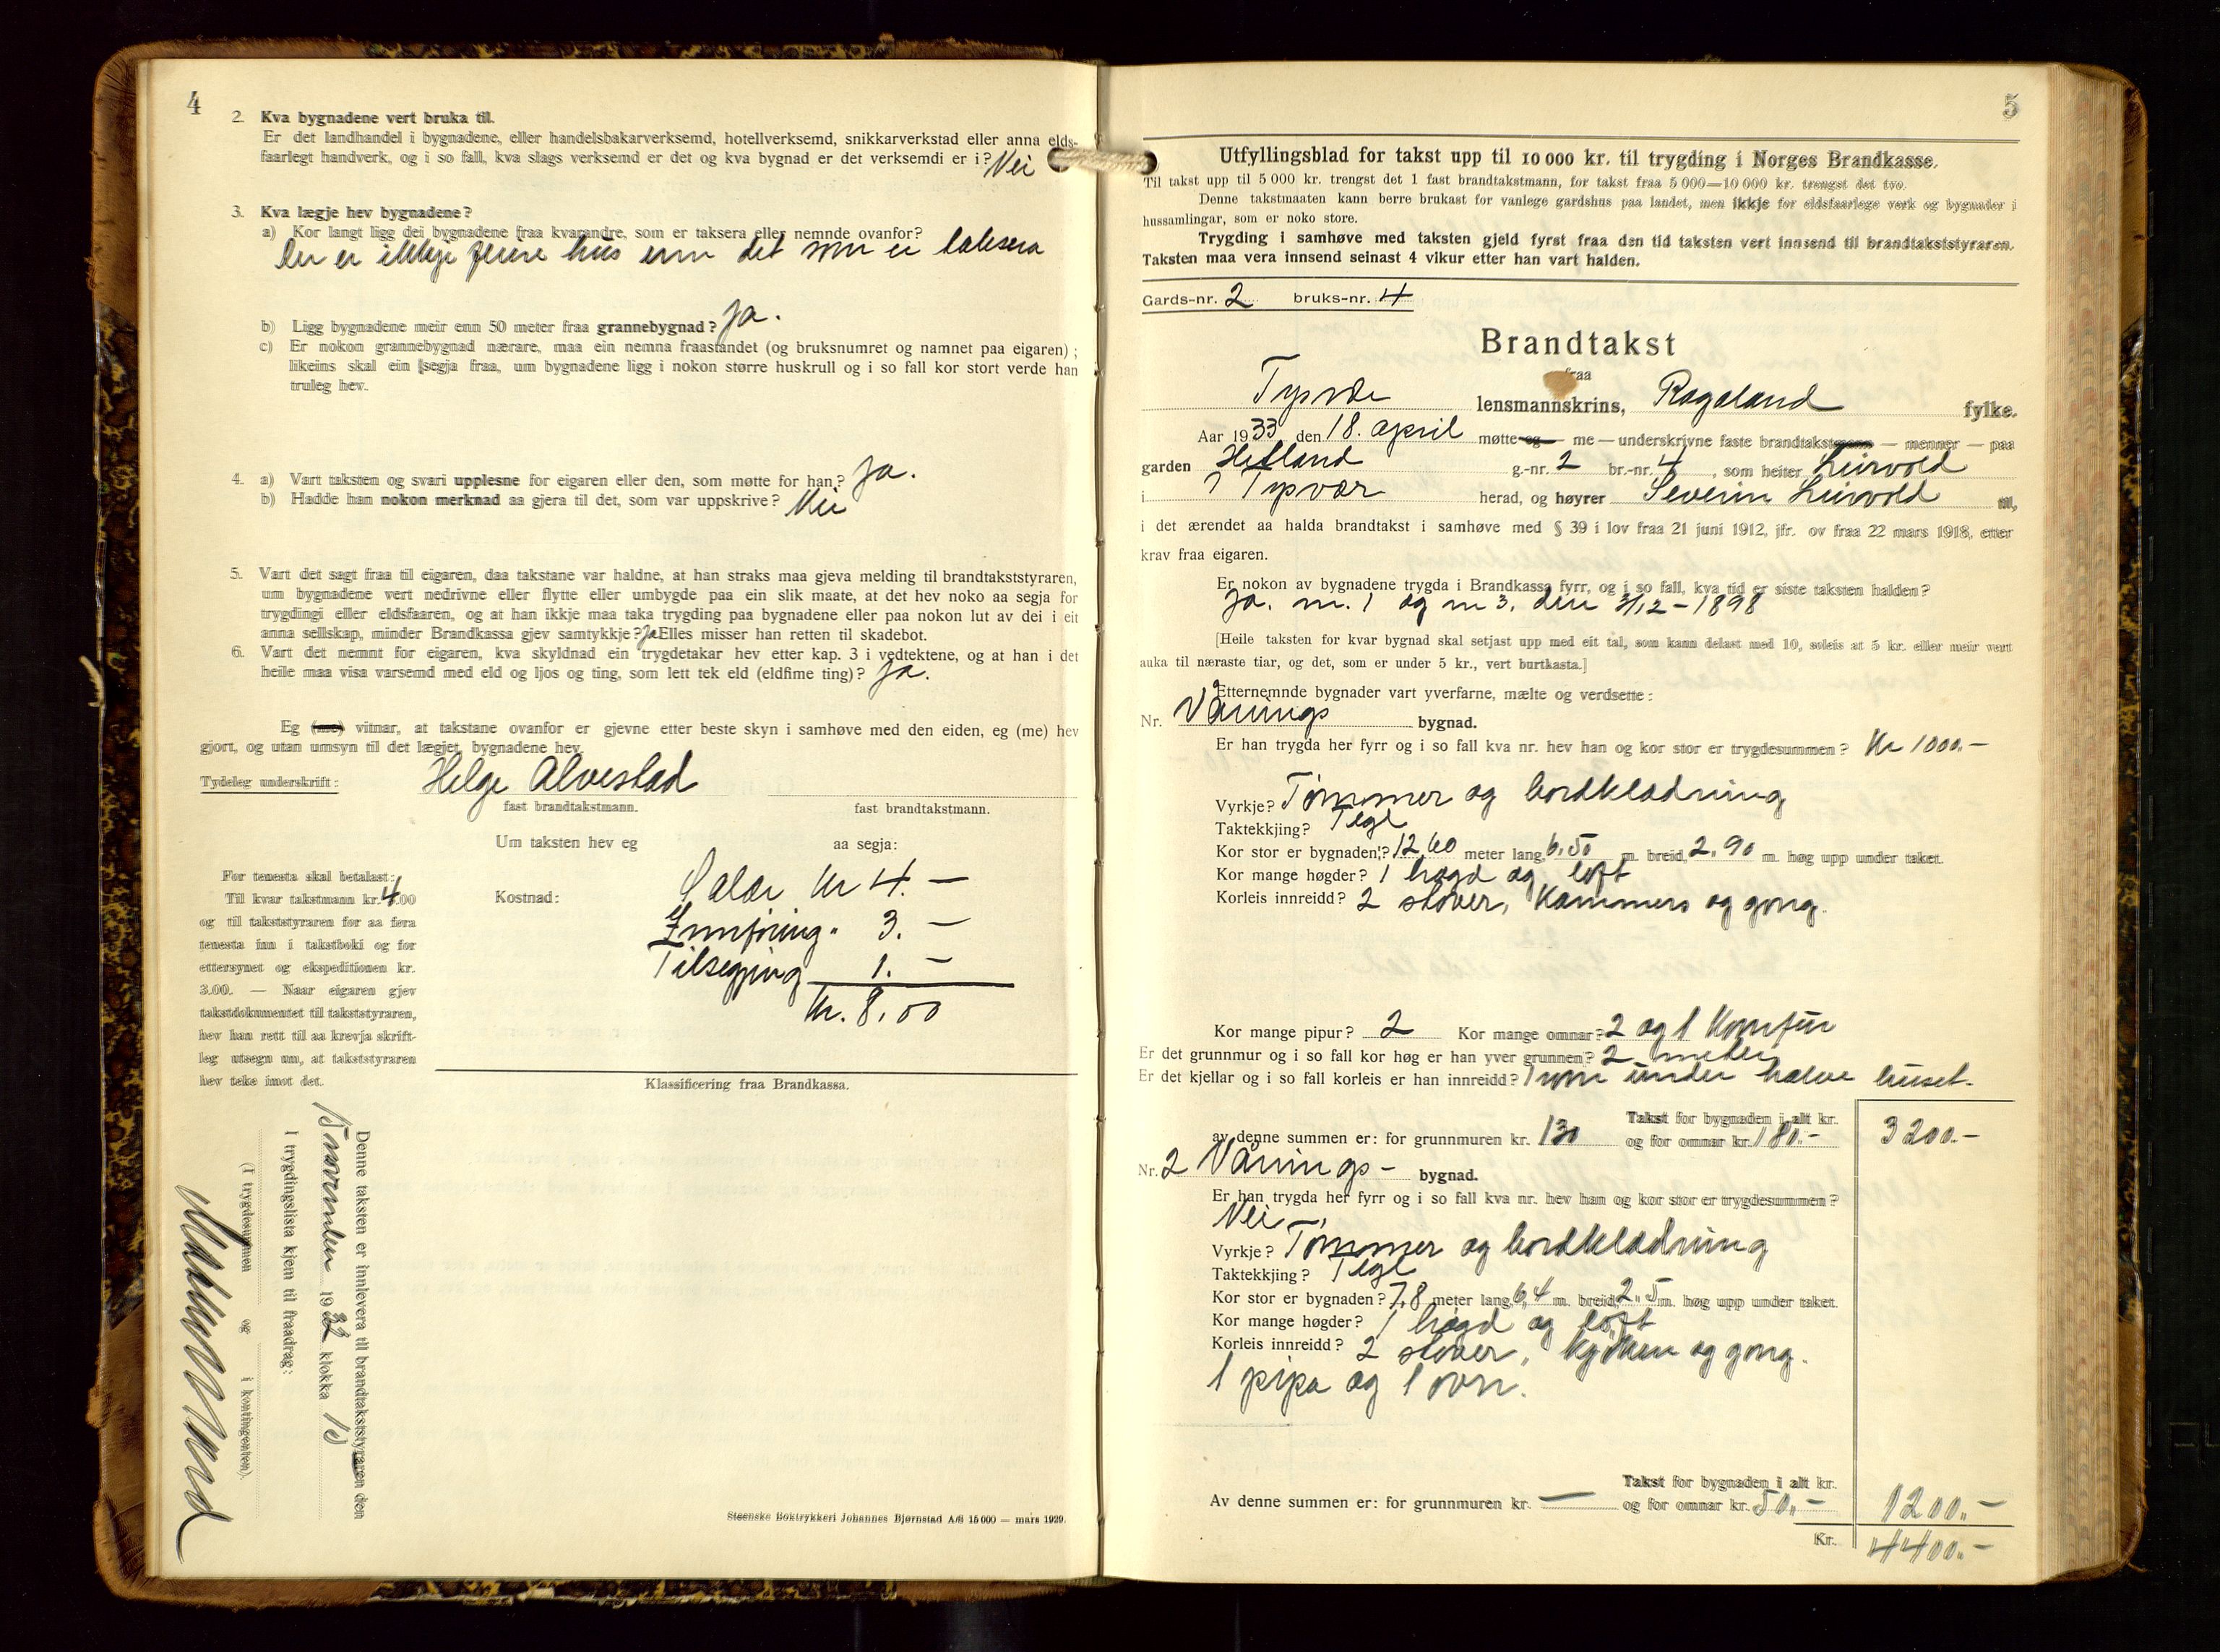 4
2. Kva bygnadene vert bruka til.
Er det landhandel i bygnadene, eller handelsbakarverksemd, hotellverksemd, snikkarverkstad eller anna elds-
faarlegt handverk, og i so fall, kva slags verksemd er det og kva bygnad er det verksemdi er i? Nei
3. Kva lægje hev bygnadene?
a) Kor langt ligg dei bygnadene fraa kvarandre, som er taksera eller nemnde ovanfor?
Der er ikkje fleire hus enn det som er taksera
b) Ligg bygnadene meir enn 50 meter fraa grannebygnad? Ja.
c) Er nokon grannebygnad nærare, maa ein nemna fraastandet (og bruksnumret og namnet paa eigaren);
likeins skal ein segja fraa, um bygnadene ligg i nokon større huskrull og i so fall kor stort verde han
truleg hev.
4. a) Vart taksten og svari upplesne for eigaren eller den, som møtte for han? Ja.
b) Hadde han nokon merknad aa gjera til det, som var uppskrive? Nei
5. Vart det sagt fraa til eigaren, daa takstane var haldne, at han straks maa gjeva melding til brandtakststyraren,
um bygnadene vert nedrivne eller flytte eller umbygde paa ein slik maate, at det hev noko aa segja for
trygdingi elller eldsfaaren, og at han ikkje maa taka trygding paa bygnadene eller paa nokon lut av dei i eit
anna sellskap, minder Brandkassa gjev samtykkje? Ja Elles misser han retten til skadebot.
6. Vart det nemnt for eigaren, kva skyldnad ein trygdetakar hev etter kap. 3 i vedtektene, og at han i det
heile maa visa varsemd med eld og ljos og ting, som lett tek eld (eldfime ting)? Ja.
Eg (me) vitnar, at takstane ovanfor er gjevne etter beste skyn i samhøve med den eiden, eg (me) hev
gjort, og utan umsyn til det lægjet, bygnadene hev.
Tydeleg underskrift: Helge Alvestad
fast brandtakstmann. fast brandtakstmann.
Um taksten hev eg aa segja:
For tenesta skal betalast:
Til kvar takstmann kr. 4.00
og til takststyraren for aa føra
tenesta inn i takstboki og for
ettersynet og ekspeditionen kr.
3.00. — Naar eigaren gjev
takstdokumentet til takststyraren,
hev han rett til aa krevja skrift-
leg utsegn um, at takststyraren
hev teke imot det.
Kostnad: Salær kr 4. —
Innføring " 3. —
Tilsegjing 1. —
Kr. 8,00
Klassificering fraa Brandkassa.
Denne taksten er innlevera til brandtakststyraren den
15 november 1932 klokka 10
I trygdingslista kjem til fraadrag:
(I trygdesummen og i kontingenten).
Steenske Boktrykkeri Johannes Bjørnstad A/S 15 000 — mars 1929.
5
Utfyllingsblad for takst upp til 10 000 kr. til trygding i Norges Brandkasse.
Til takst upp til 5 000 kr. trengst det 1 fast brandtakstmann, for takst fraa 5 000—10 000 kr. trengst det tvo.
Denne takstmaaten kann berre brukast for vanlege gardshus paa landet, men ikkje for eldsfaarlege verk og bygnader i
hussamlingar, som er noko store.
Trygding i samhøve med taksten gjeld fyrst fraa den tid taksten vert innsend til brandtakststyraren.
Taksten maa vera innsend seinast 4 vikur etter han vart halden.
Gards-nr. 2 bruks-nr. 4
Brandtakst
fraa
Tysvær lensmannskrins, Rogaland fylke.
Aar 1933 den 18. april møtte eg — me — underskrivne faste brandtakstmann — menner — paa
garden Hetland g.-nr. 2 br.-nr. 4, som heiter Leirvold
i Tysvær herad, og høyrer Severin Leirvold til,
i det ærendet aa halda brandtakst i samhøve med § 39 i lov fraa 21 juni 1912, jfr. ov fraa 22 mars 1918, etter
krav fraa eigaren.
Er nokon av bygnadene trygda i Brandkassa fyrr, og i so fall, kva tid er siste taksten halden?
Ja. nr. 1 og nr 3. den 3/12-1898
[Heile taksten for kvar bygnad skal setjast upp med eit tal, som kann delast med 10, soleis at 5 kr. eller meir vert
auka til næraste tiar, og det, som er under 5 kr., vert burtkasta.]
Etternemnde bygnader vart yverfarne, mælte og verdsette:
Nr. Vånings bygnad.
Er han trygda her fyrr og i so fall kva nr. hev han og kor stor er trygdesummen? Kr 1000.—
Vyrkje? Tømmer og bordklædning
Taktekkjing? Tegl
Kor stor er bygnaden? 12,60 meter lang, 6,50 m. breid, 2,90 m. høg upp under taket.
Kor mange høgder? 1 høgd og loft
Korleis innreidd? 2 stover, kammers og gong.
Kor mange pipur? 2 Kor mange omnar? 2 og 1 Komfur
Er det grunnmur og i so fall kor høg er han yver grunnen? 2 meter
Er det kjellar og i so fall korleis er han innreidd? 1 rom under halve huset.
Takst for bygnaden i alt kr.
av denne summen er: for grunnmuren kr. 130 og for omnar kr. 180.- 3200.-
Nr. 2 Vånings- bygnad.
Er han trygda her fyrr og i so fall kva nr. hev ham og kor stor er trygdesummen?
Nei
Vyrkje? Tømmer og bordklædning
Taktekkjing? Tegl
Kor stor er bygnaden? 7,8 meter lang, 6,4 m. breid, 2,5 m. høg upp under taket.
Kor mange høgder? 1 høgd og loft
Korleis innreidd? 2 stover, kjøken og gong.
1 pipa og 1 ovn.
Takst for bygnaden i alt kr.
Av denne summen er: for grunnmuren kr. — og for omnar kr. 50,- 1200.-
Kr. 4400.-